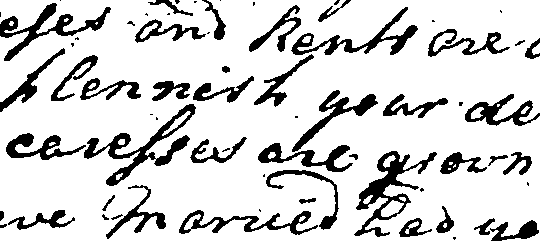 and Rents are
plennish your de
caresses are grown
Married had yo